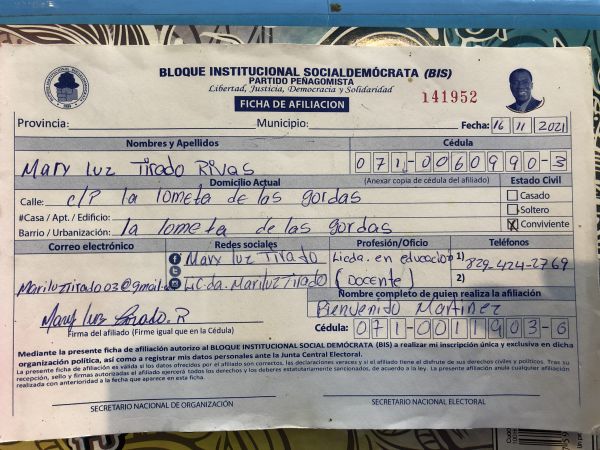 BLOQUE INSTITUCIONAL SOCIALDEMÓCRATA (BIS)
PARTIDO PEÑAGOMISTA
Libertad, Justicia, Democracia y Solidaridad
FICHA DE AFILIACION
141952
Provincia: Municipio: Fecha: 16 11 2021
Nombres y Apellidos Cédula
Mary Luz Tirado Rivas 071-0060990-3
Domicilio Actual (Anexar copia de cédula del afiliado) Estado Civil
Calle: c/P la lometa de las gordas Casado
#Casa / Apt. / Edificio: Soltero
Barrio / Urbanización: la lometa de las gordas X Conviviente
Correo electrónico Redes sociales Profesión/Oficio Teléfonos
Mary luz Tirado Licda. en educacion 1) 829-424-2769
Mariluztirado03@gmail. Lic-da. Mariluztirado (Docente) 2)
Nombre completo de quien realiza la afiliación
Bienvenido Martinez
Mary Luz Tirado. R
Firma del afiliado (Firme igual que en la Cédula) Cédula: 071-0011903-6
Mediante la presente ficha de afiliación autorizo al BLOQUE INSTITUCIONAL SOCIAL DEMÓCRATA (BIS) a realizar mi inscripción única y exclusiva en dicha
organización política, así como a registrar mis datos personales ante la Junta Central Electoral.
La presente ficha de afiliación es válida si los datos ofrecidos por el afiliado son correctos, las declaraciones veraces y si el afiliado tiene el disfrute de sus derechos civiles y políticos. Tras su
recepción, sello y firmas autorizadas el afiliado ejercerá todos los derechos y los deberes estatutariamente sancionados, de acuerdo a la ley. La presente afiliación anula cualquier afiliación
realizada con anterioridad a la fecha que aparece en esta ficha.
SECRETARIO NACIONAL DE ORGANIZACIÓN SECRETARIO NACIONAL ELECTORAL